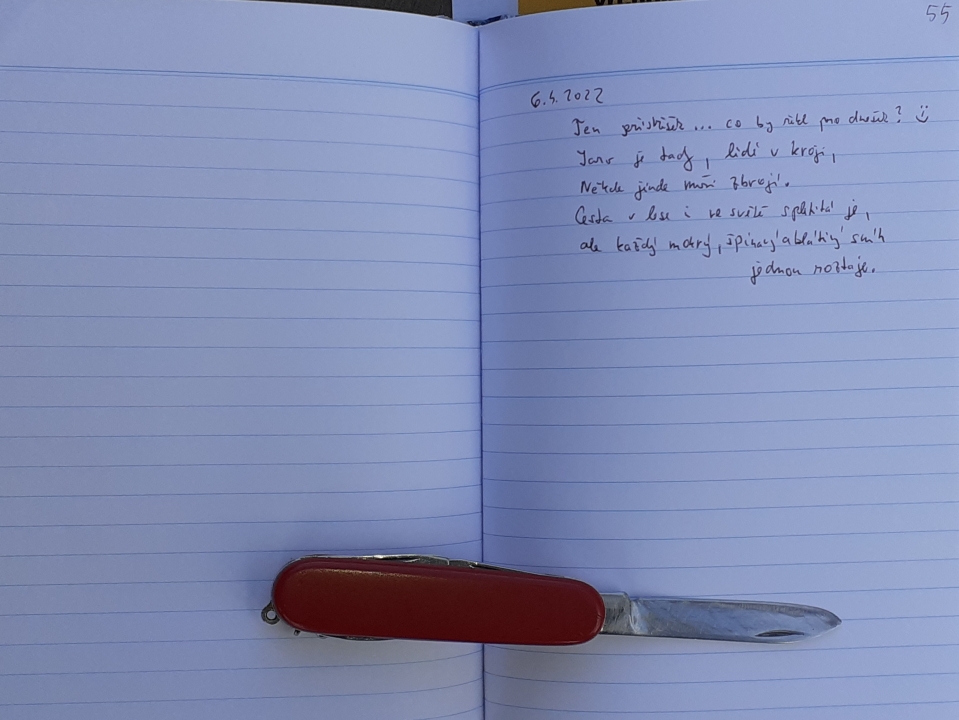 55
6.4.2022
Ten ... co by řekl pro dnešek? :)
Jaro je tady, lidi v kroji,
Někde jinde muži zbrojí.
Cesta v lese i ve světě spletitá je,
ale každý mokrý, špinavý a blátivý sníh
jednou roztaje.